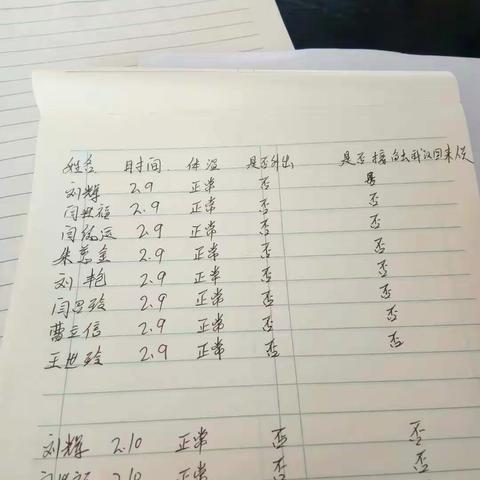 姓名 时间 体温 是否外出 是否接触武汉回来人
刘辉 2.9 正常 否 否
闫 2.9 正常 否 否
闫 2.9 正常 否 否
朱 金 2.9 正常 否 否
刘艳 2.9 正常 否 否
闫 玲 2.9 正常 否 否
曹立信 2.9 正常 否 否
王世玲 2.9 正常 否 否
刘辉 2.10 正常 否 否
2.10 正常 否 否